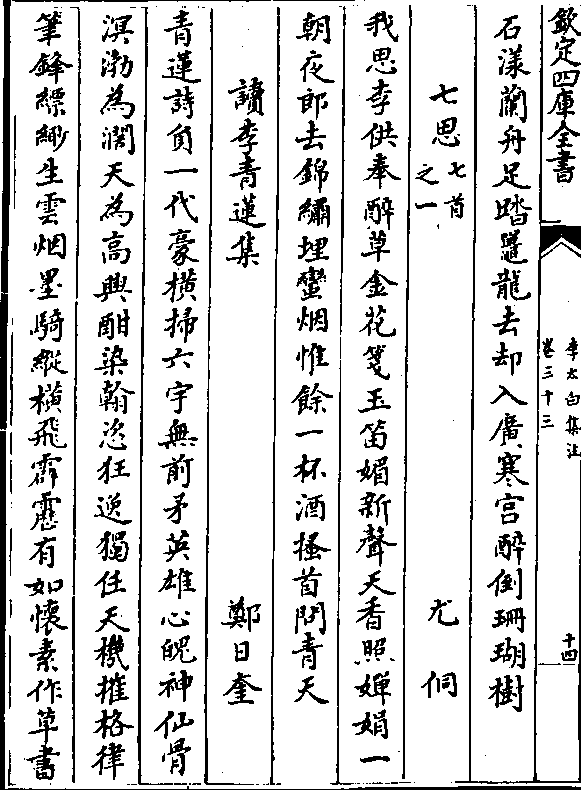 欽定四庫全書
李太白集注
卷三十三
十四
石漾蘭舟足踏鼉龍去却入廣寒宫醉倒珊瑚樹
七思七首之一
尤侗
我思李供奉醉草金花箋玉笛媚新聲天香照嬋娟一
朝夜郎去錦繡埋蠻烟惟餘一杯酒搔首問青天
讀李青蓮集
鄭日奎
青蓮詩負一代豪橫掃六宇無前矛英雄心魄神仙骨
溟渤為濶天為高興酣染翰恣狂逸獨任天機摧格律
筆鋒縹緲生雲烟墨騎縱橫飛霹靂有如懷素作草書